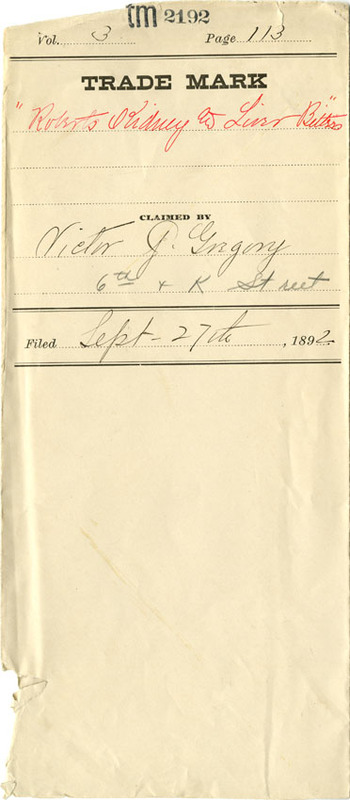 tm 2192
Vol. 3 Page 113
TRADE MARK
"Roberts Kidney & Liver Bitters"
CLAIMED BY
Victor J. Gregory
6th & K Street
Filed Sept - 27th, 1892